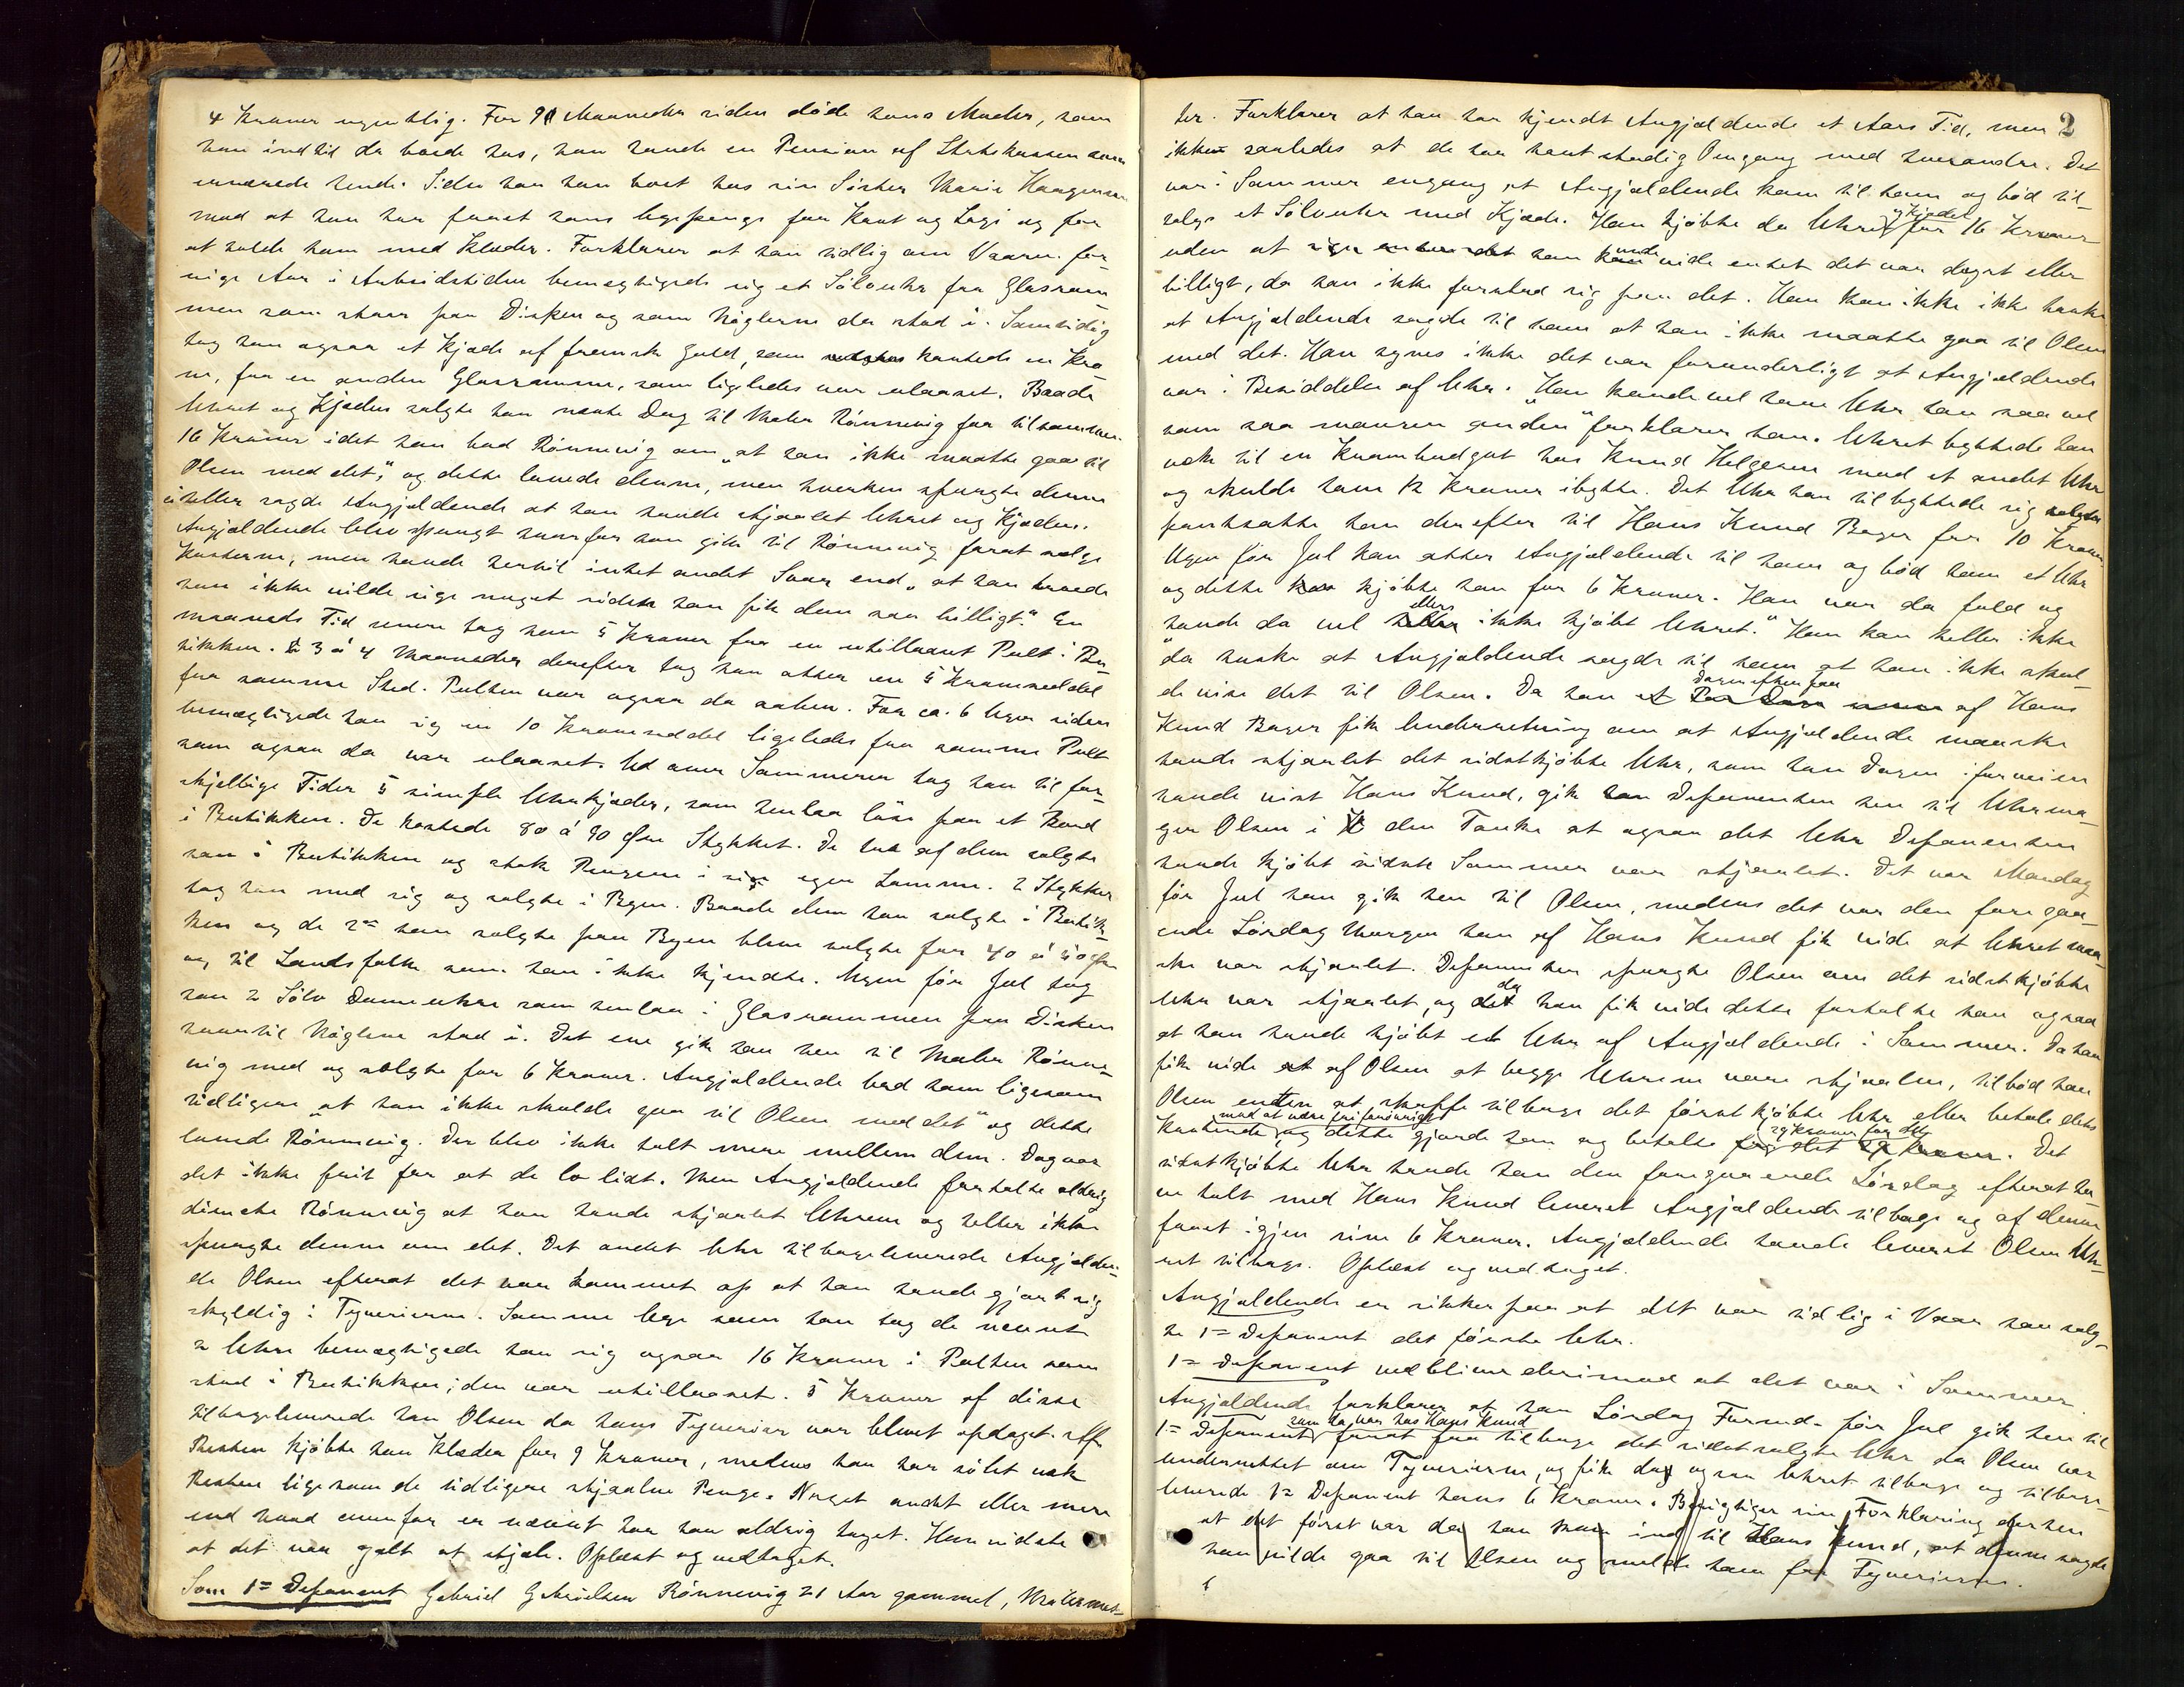 4 Kroner ugentlig. For 9 Maaneder siden döde hans Moder, som
han indtil da boede hos, hun havde en Pension af Statskassen som
ernærede hende. Siden har han boet hos sin Söster Marie Haagensen
mod at hun har faaet hans Ugepenge for Kost og Logi og for
at holde ham med Klæder. Forklarer at han tidlig om Vaaren for-
rige Aar i Arbeidstiden bemægtigede sig et Sölvuhr fra Glasram-
men som staar paa Disken og som Nöglerne da stod i. Samtidig
tog han ogsaa et Kjæde af fransk Guld, som kostede en Kro-
ne, fra en anden Glasramme, som ligeledes var ulaaset. Baade
Uhret og Kjæden solgte han næste Dag til Maler Rönnevig for tilsammen
16 Kroner idet han bad Rönnevig om „at han ikke maatte gaa til
Olsen med det", og dette lovede denne, men hverken spurgte denne
eiheller sagde Angjældende at han havde stjaalet Uhret og Kjæden.
Angjældende blev spurgt hvorfor han gik til Rönnevig forat sælge
Kosterne, men havde hertil intet andet Svar end „at han troede
han ikke vilde sige noget siden han fik dem saa billigt." En
maaneds Tid senere tog han 5 Kroner fra en utillaaset Pult i Bu-
tikken. 3 á 4 Maaneder derefter tog han atter en 5 Kroneseddel
fra samme Sted. Pulten var ogsaa da aaben. For ca. 6 Uger siden
bemægtigede han sig en 10 Kroneseddel ligeledes fra samme Pult
som ogsaa da var ulaaset. Ud over Sommeren tog han til for-
skjellige Tider 5 simple Uhrkjæder, som henlaa löse paa et Bord
i Butikken. De kostede 80 á 90 Öre Stykket. De tre af dem solgte
han i Butikken og stak Pengene i sin egen Lomme. 2 Stykker
tog han med sig og solgte i Byen. Baade dem han solgte i Butik-
ken og de 2de han solgte paa Byen blev solgte for 40 á 50 Öre
og til Landsfolk som han ikke kjendte. Ugen för Jul tog
han 2 Sölv Dameuhre som henlaa i Glasrammen paa Disken
hvortil Nöglene stod i. Det ene gik han hen til Maler Rönne-
vig med og solgte for 6 Kroner. Angjældende bad ham ligesom
tidligere „at han ikke skulde gaa til Olsen med det" og dette
lovede Rönnevig. Der blev ikke talt mere mellem dem. Dog var
det ikke frit for at de lo lidt. Men Angjældende fortalte aldrig
direkte Rönnevig at han havde stjaalet Uhrene og heller ikke
spurgte denne om det. Det andet Uhr tilbageleverede Angjælden-
de Olsen efterat det var kommet op at han havde gjort sig
skyldig i Tyverierne. Samme Uge som han tog de nævnte
2 Uhre bemægtigede han sig ogsaa 16 Kroner i Pulten som
stod i Butikken; den var utillaaset. 5 Kroner af disse
tilbageleverede han Olsen da hans Tyverier var blevet opdaget. Af
Resten kjöbte han Klæder for 9 Kroner, medens han har sölet væk
Resten ligesom de tidligere stjaalne Penge. Noget andet eller mere
end hvad ovenfor er nævnt har han aldrig taget. Han vidste
at det var galt at stjæle. Oplæst og vedtaget.
Som 1ste Deponent Gabriel Gabrielsen Rönnevig 21 Aar gammel, Malermes-
2
ter. Forklarer at han har kjendt Angjældende et Aars Tid, men
ikke saaledes at de har havt stadig Omgang med hverandre. Det
var i Sommer engang at Angjældende kom til ham og böd til-
salgs et Sölvuhr med Kjæde. Han kjöbte da Uhret og Kjædet for 16 Kroner
uden at han kunde vide enten det var dyrt eller
billigt, da han ikke forstod sig paa det. Han kan ikke ikke huske
at Angjældende sagde til ham at han ikke maatte gaa til Olsen
med det. Han synes ikke det var forunderligt at Angjældende
var i Besiddelse af Uhr. „Han kunde vel have Uhr han saa vel
som saa mangen anden" forklarer han. Uhret byttede han
væk til en Krambodgut hos Knud Helgesen mod et andet Uhr
og skulde have 12 Kroner ibytte. Det Uhr han tilbyttede sig
pantsatte han derefter til Hans Knud Bager for 10 Kroner
Ugen för Jul kom atter Angjældende til ham og böd ham et Uhr
og dette kjöbte han for 6 Kroner. Han var da fuld og
havde da vel ellers ikke kjöbt Uhret." Han kan heller ikke
da huske at Angjældende sagde til ham at han ikke skul-
de vise det til Olsen. Da han Dagen efter paa af Hans
Knud Bager fik Underretning om at Angjældende maaske
havde stjaalet det sidstkjöbte Uhr, som han Dagen iforveien
havde vist Hans Knud, gik Deponenten hen til Uhrma-
ger Olsen i den Tanke at ogsaa det Uhr Deponenten
havde kjöbt sidste Sommer var stjaalet. Det var Mandag
för Jul han gik hen til Olsen, medens det var den foregaa-
ende Lördag Morgen han af Hans Knud fik vide at Uhret maa-
ske var stjaalet. Deponenten spurgte Olsen om det sidstkjöbte
Uhr var stjaalet, og da han fik vide dette fortalte han ogsaa
at han havde kjöbt et Uhr af Angjældende i Sommer. Da han
fik vide af Olsen at begge Uhrene vare stjaalne, tilböd han
Olsen enten at skaffe tilbage det förstkjöbte Uhr eller betale dets
Kostende mod at være fri forövrigt, og dette gjorde han og betalte 29 Kroner for det. Det
sidstkjöbte Uhr havde han den foregaaende Lördag efterat ha-
ve talt med Hans Knud leveret Angjældende tilbage og af denne
faaet igjen sine 6 Kroner. Angjældende havde leveret Olsen Uh-
ret tilbage. Oplæst og vedtaget.
Angjældende er sikker paa at det var tidlig i Vaar han solg-
te 1ste Deponent det förste Uhr.
1ste Deponent vedbliver derimod at det var i Sommer.
Angjældende forklarer at han Lördag Formd. för Jul gik hen til
1ste Deponent som da var hos Hans Knud forat faa tilbage det sidstsolgte Uhr da Olsen var
underrettet om Tyverierne, og fik da ogsaa Uhret tilbage og tilbage-
leverede 1ste Deponent hans 6 Kroner. Berigtiger sin Forklaring derhen
at det först var da han kom ind til Hans Knud, at denne sagde
han vilde gaa til Olsen og melde ham for Tyverierne.